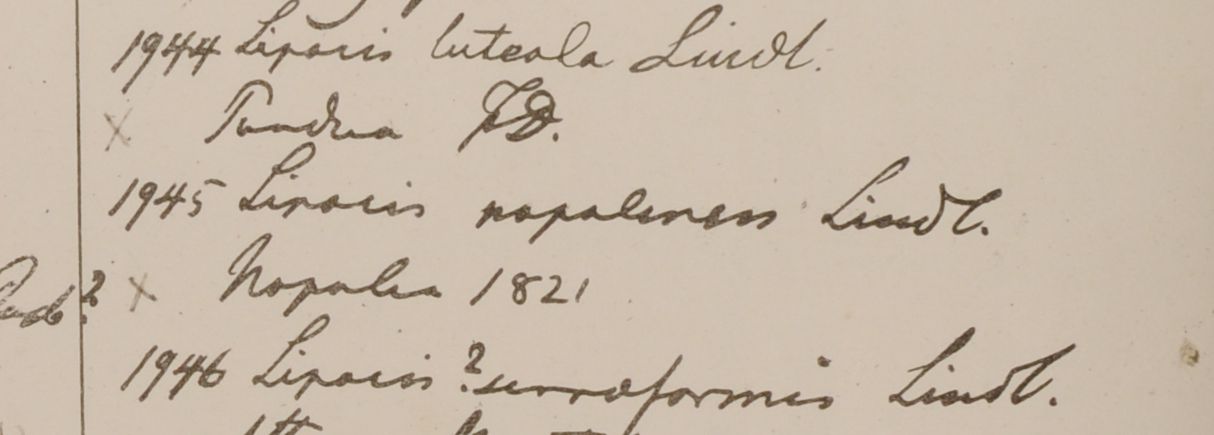 1944 Liparis luteola Lindl.
× Pundua F.D.
1945 Liparis napalensis Lindl.
× Napalia 1821
1946 Liparis ? Lindl.